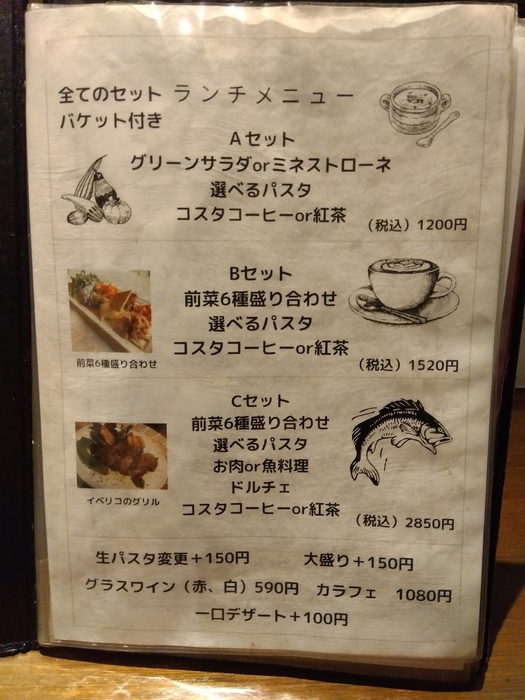 全てのセット ランチメニュー
バケット付き
Aセット
グリーンサラダorミネストローネ
選べるパスタ
コスタコーヒーor紅茶
（税込）1200円
Bセット
前菜6種盛り合わせ
選べるパスタ
コスタコーヒーor紅茶
前菜6種盛り合わせ
（税込）1520円
Cセット
前菜6種盛り合わせ
選べるパスタ
お肉or魚料理
ドルチェ
コスタコーヒーor紅茶
イベリコのグリル
（税込）2850円
生パスタ変更＋150円 大盛り＋150円
グラスワイン（赤、白）590円 カラフェ 1080円
一口デザート＋100円